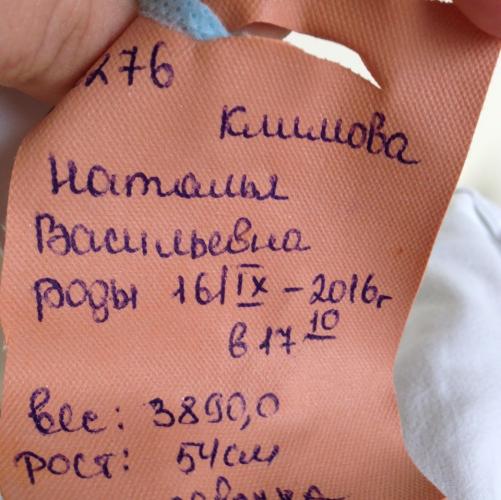 276
Климова
Наталья
Васильевна
роды 16/IX - 2016г
в 17 10
вес: 3890,0
рост: 54см